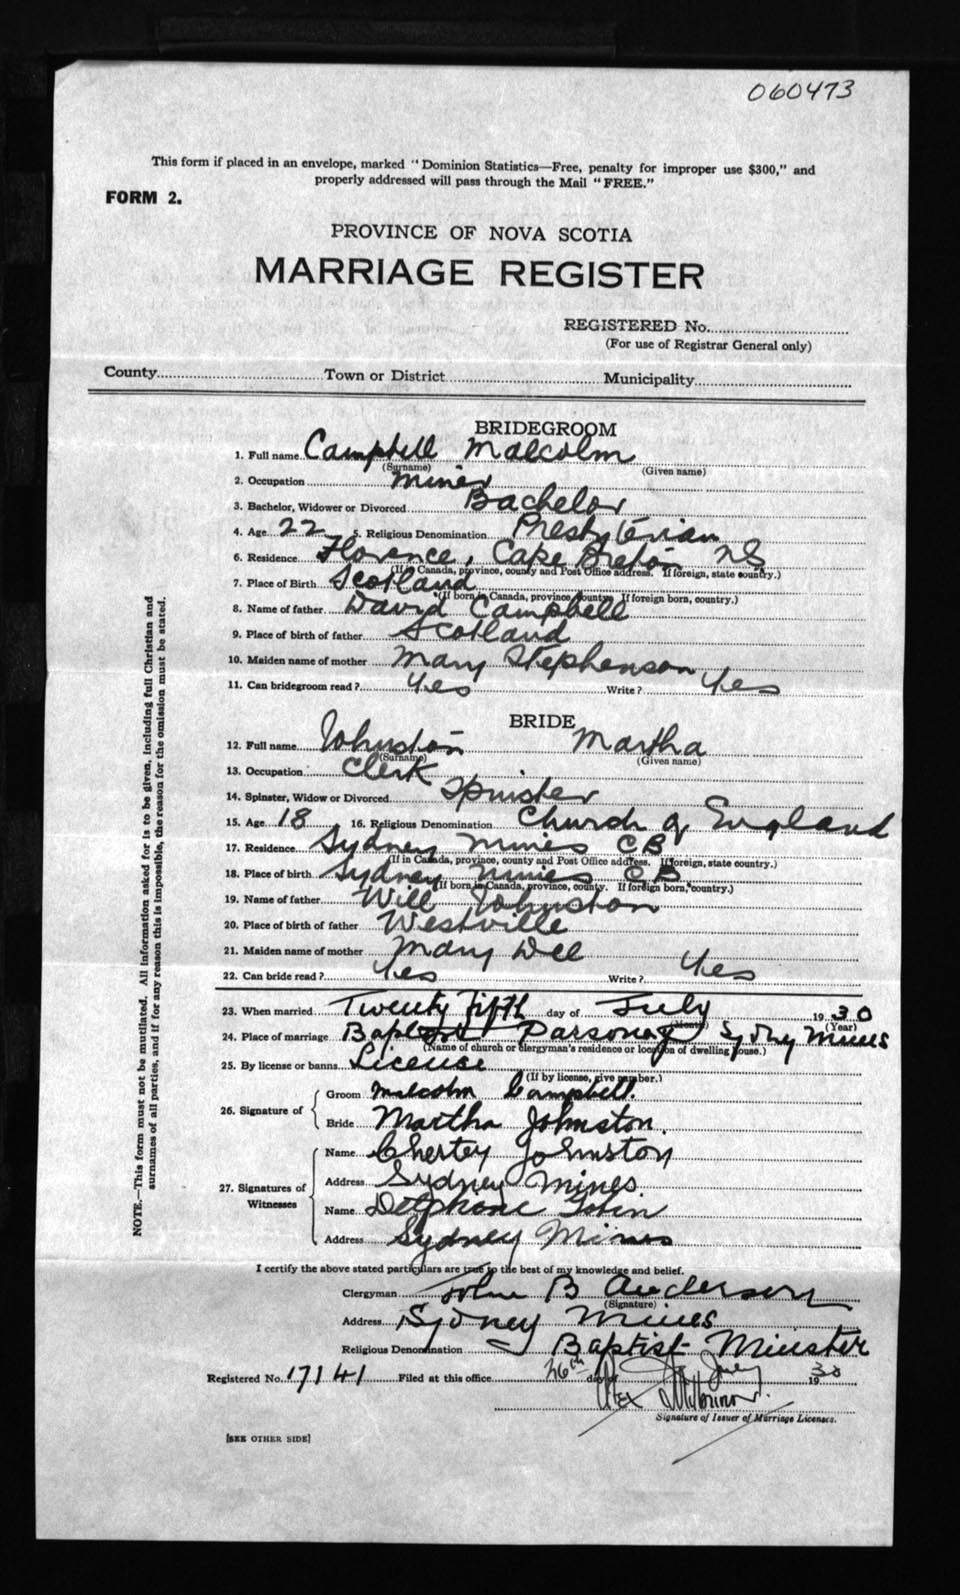 060473
This form if placed in an envelope, marked "Dominion Statistics—Free, penalty for improper use $300," and
properly addressed will pass through the Mail "FREE."
FORM 2.
PROVINCE OF NOVA SCOTIA
MARRIAGE REGISTER
REGISTERED No.
(For use of Registrar General only)
County Town or District Municipality
BRIDEGROOM
1. Full name Campbell Malcolm
(Surname) (Given name)
2. Occupation miner
3. Bachelor, Widower or Divorced Bachelor
4. Age 22 5. Religious Denomination Presbyterian
6. Residence Florence, Cape Breton NS
(If in Canada, province, county and Post Office address. If foreign, state country.)
7. Place of Birth Scotland
(If born in Canada, province, county. If foreign born, country.)
8. Name of father David Campbell
9. Place of birth of father Scotland
10. Maiden name of mother Mary Stephenson
11. Can bridegroom read? Yes Write? Yes
BRIDE
12. Full name Johnston Martha
(Surname) (Given name)
13. Occupation Clerk
14. Spinster, Widow or Divorced Spinster
15. Age 18 16. Religious Denomination Church of England
17. Residence Sydney Mines CB
(If in Canada, province, county and Post Office address. If foreign, state country.)
18. Place of birth Sydney Mines CB
(If born in Canada, province, county. If foreign born, country.)
19. Name of father Will Johnston
20. Place of birth of father Westville
21. Maiden name of mother Mary Dee
22. Can bride read? Yes Write? Yes
23. When married Twenty Fifth day of July 1930
(Month) (Year)
24. Place of marriage Baptist Parsonag Sydny Mines
(Name of church or clergyman's residence or location of dwelling house.)
25. By license or banns License
(If by license, give number.)
26. Signature of
Groom Malcolm Campbell.
Bride Martha Johnston.
27. Signatures of Witnesses
Name Johnston
Address Sydney Mines.
Name Tobin
Address Sydney Mines
I certify the above stated particulars are true to the best of my knowledge and belief.
Clergyman John B Anderson
(Signature)
Address Sydney Mines
Religious Denomination Baptist Minister
Registered No. 17141 Filed at this office 26th day of July 1930
Alex
Signature of Issuer of Marriage Licenses.
[SEE OTHER SIDE]
NOTE.—This form must not be mutilated. All information asked for is to be given, including full Christian and
surnames of all parties, and if for any reason this is impossible, the reason for the omission must be stated.